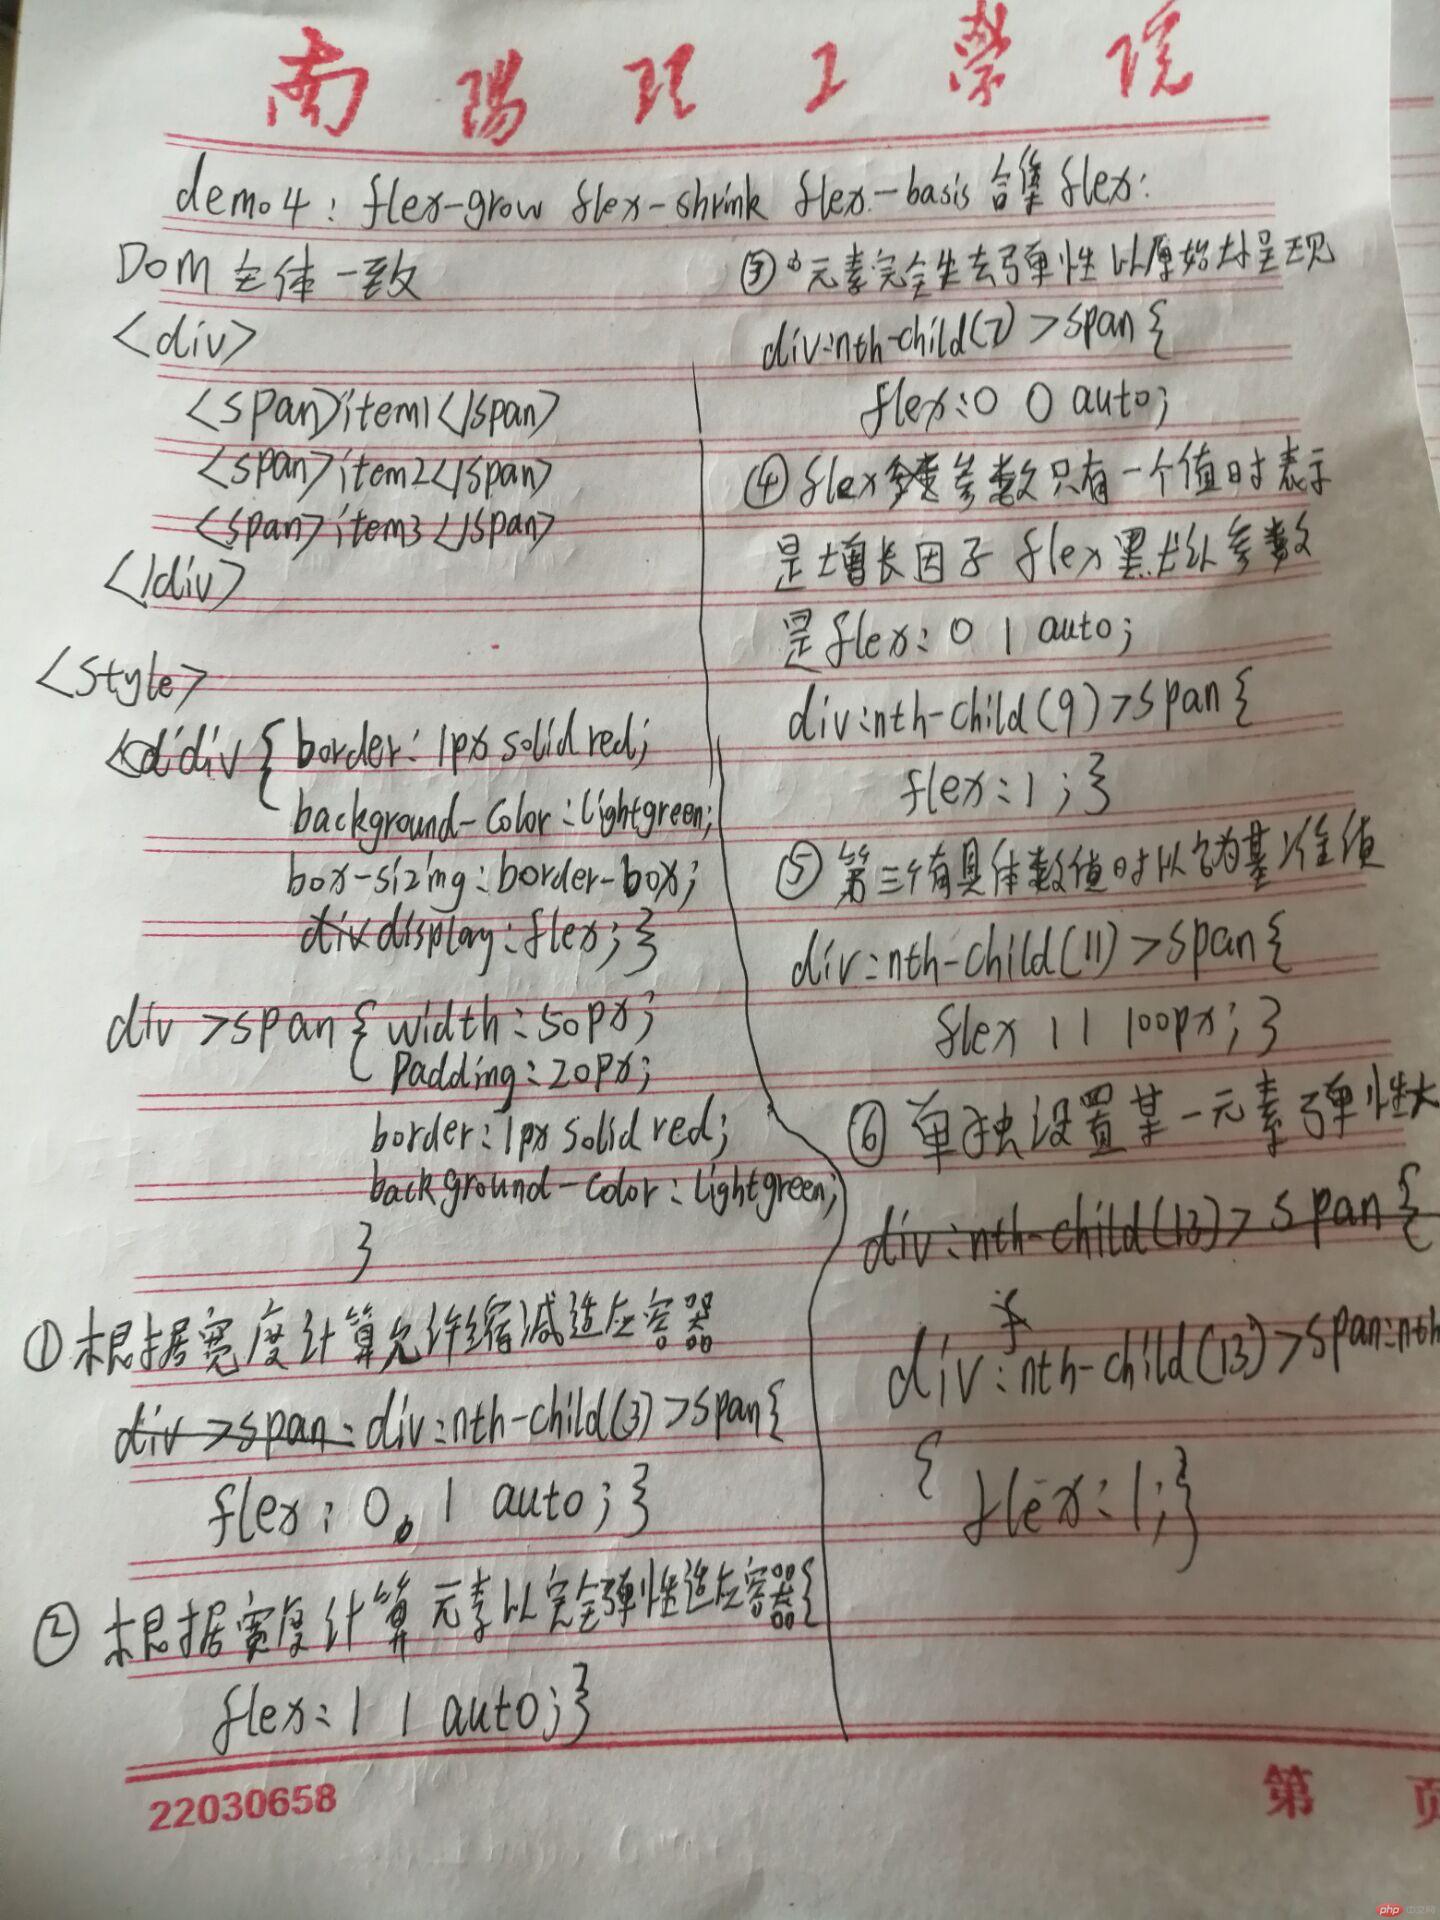 南陽理工學院
demo4: flex-grow flex-shrink flex-basis 合集 flex:
Dom 主体一致
<div>
<span>item1</span>
<span>item2</span>
<span>item3</span>
</div>
<style>
div { border: 1px solid red;
background-color: lightgreen;
box-sizing: border-box;
display: flex; }
div >span { width: 50px;
padding: 20px;
border: 1px solid red;
background-color: lightgreen;
}
① 根据宽度计算允许缩减适应容器
div >span: div:nth-child(3) >span{
flex: 0 1 auto; }
② 根据宽度计算 元素以完全弹性适应容器{
flex: 1 1 auto; }
③ 元素完全失去弹性 以原始大小呈现
div:nth-child(7) >span {
flex: 0 0 auto;
④ flex 参数只有一个值时表示
是增长因子 flex默认参数
是 flex: 0 1 auto;
div:nth-child(9) >span {
flex: 1 ; }
⑤ 第三个有具体数值时以它为基准值
div:nth-child(11) >span {
flex 1 1 100px; }
⑥ 单独设置某一元素弹性大
div:nth-child(13) > span {
div:nth-child(13) >span:nth
{
flex: 1; }
22030658
第 页
php 中文网